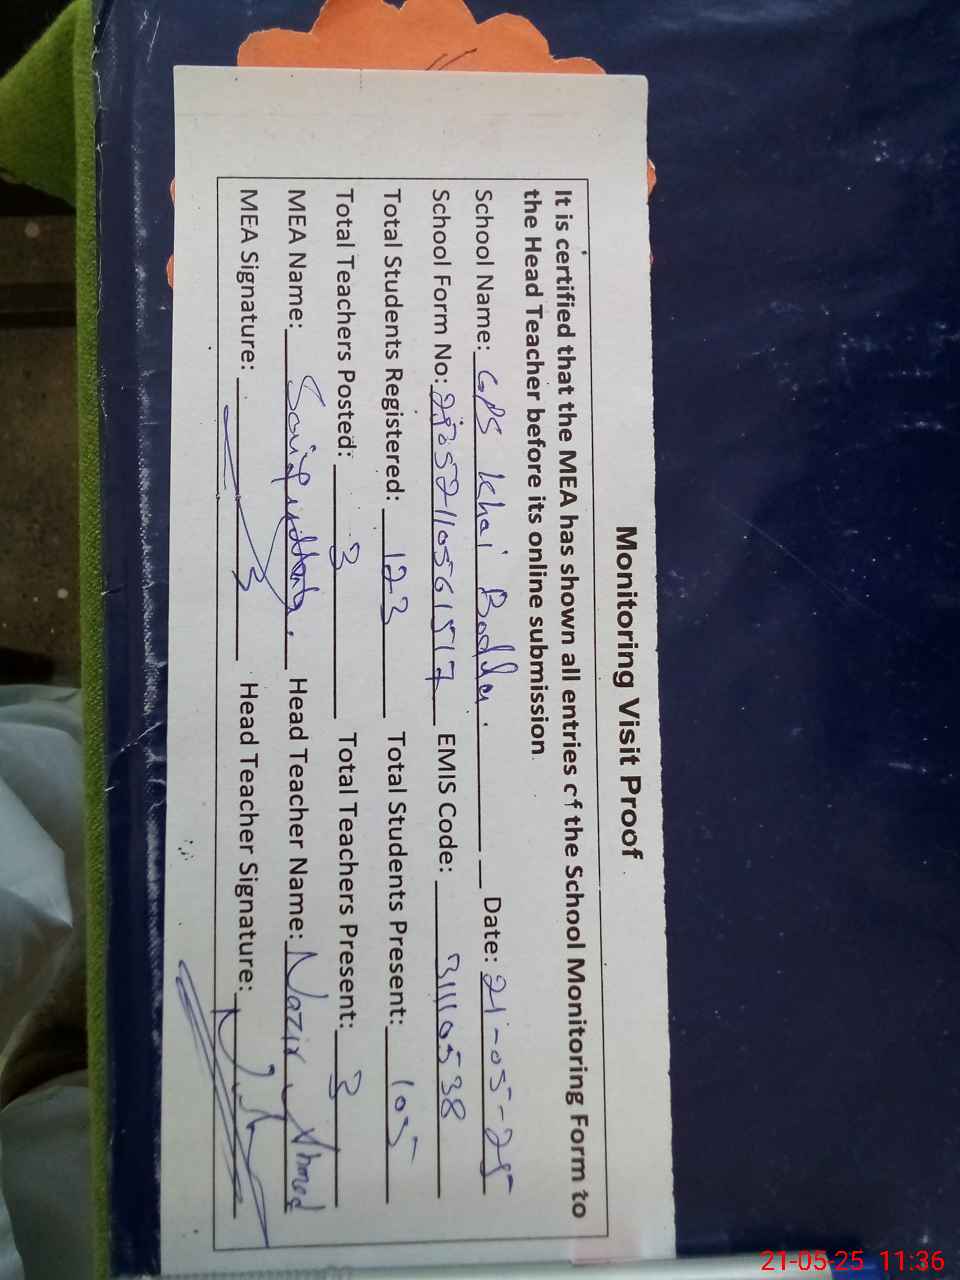 Monitoring Visit Proof
It is certified that the MEA has shown all entries of the School Monitoring Form to
the Head Teacher before its online submission
School Name: GPS Khai Badda. Date: 21-05-25
School Form No: EMIS Code: 31110538
Total Students Registered: 123 Total Students Present: 105
Total Teachers Posted: 3 Total Teachers Present: 3
MEA Name: Head Teacher Name: Nazir Ahmed
MEA Signature: Head Teacher Signature:
21-05-25 11:36